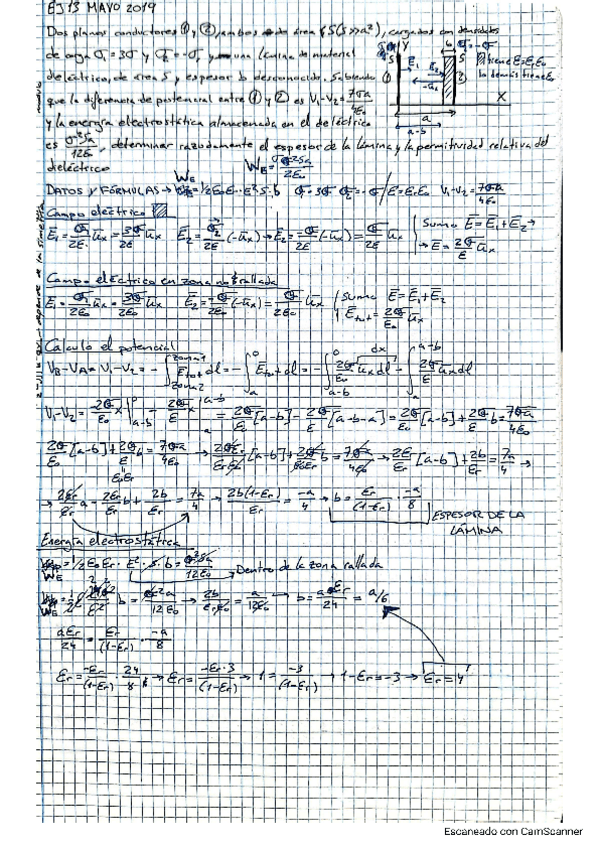 EJ 13 MAYO 2019
Dos planos conductores ① y ②, ambos de área S (S>>a²), cargados con densidades
de carga σ₁=3σ y σ₂=-σ, y una lámina de material
dieléctrico, de área S y espesor b desconocido. Sabiendo
que la diferencia de potencial entre ① y ② es V₁-V₂=7σa/4ε₀
y la energía electrostática almacenada en el dieléctrico
es σ²Sa/12ε₀, determinar razonadamente el espesor de la lámina y la permitividad relativa del
dieléctrico
Y
E₁
E₂
-ūx
tiene E=εrε₀
lo demás tiene ε₀
X
a
a-b
b
DATOS Y FÓRMULAS → WE=1/2 ε₀εr·E²·S·b σ₁=3σ σ₂=-σ / ε=εrε₀ V₁-V₂=7σa/4ε₀
Campo eléctrico
E₁=σ₁/2ε ūx=3σ/2ε ūx E₂=σ₂/2ε(-ūx)→E₂=-σ/2ε(-ūx)=σ/2ε ūx | Suma E=E₁+E₂→
→E=2σ/ε ūx
Campo eléctrico en zona no rallada
E₁=σ₁/2ε₀ ūx=3σ/2ε₀ ūx E₂=-σ/2ε₀(-ūx)=σ/2ε₀ ūx | Suma E=E₁+E₂
Etot=2σ/ε₀ ūx
Calculo el potencial
VB-VA=V₁-V₂=-∫zona2^zona1 Etot dl=-∫a^0 Etot dl=-∫a-b^0 2σ/ε₀ ūx dl-∫a^a-b 2σ/ε ūx dl
dx
V₁-V₂=-2σ/ε₀ x|a-b^0 -2σ/ε x|a^a-b=2σ/ε₀[a-b]-2σ/ε[a-b-a]=2σ/ε₀[a-b]+2σ/ε b=7σa/4ε₀
2σ/ε₀[a-b]+2σ/ε b=7σa/4ε₀ → 2σεr/εrε₀[a-b]+2σ/ε₀εr b=7σa/4ε₀ → 2εr/εr[a-b]+2b/εr=7a/4 →
→ 2εr/εr a-2εr/εr b+2b/εr=7a/4 → 2b(1-εr)/εr=-a/4 → b=εr/(1-εr)·-a/8
ESPESOR DE LA
LÁMINA
Energía electrostática
WE=1/2 ε₀εr·E²·S·b=σ²Sa/12ε₀ → Dentro de la zona rallada
b=σ²a/12ε₀ → 2b/εrε₀=a/12ε₀ → b=aεr/24=a/6
aεr/24=εr/(1-εr)·-a/8
εr=-εr/(1-εr)·24/8 → εr=-εr·3/(1-εr) → 1=-3/(1-εr) → 1-εr=-3 → εr=4
Escaneado con CamScanner